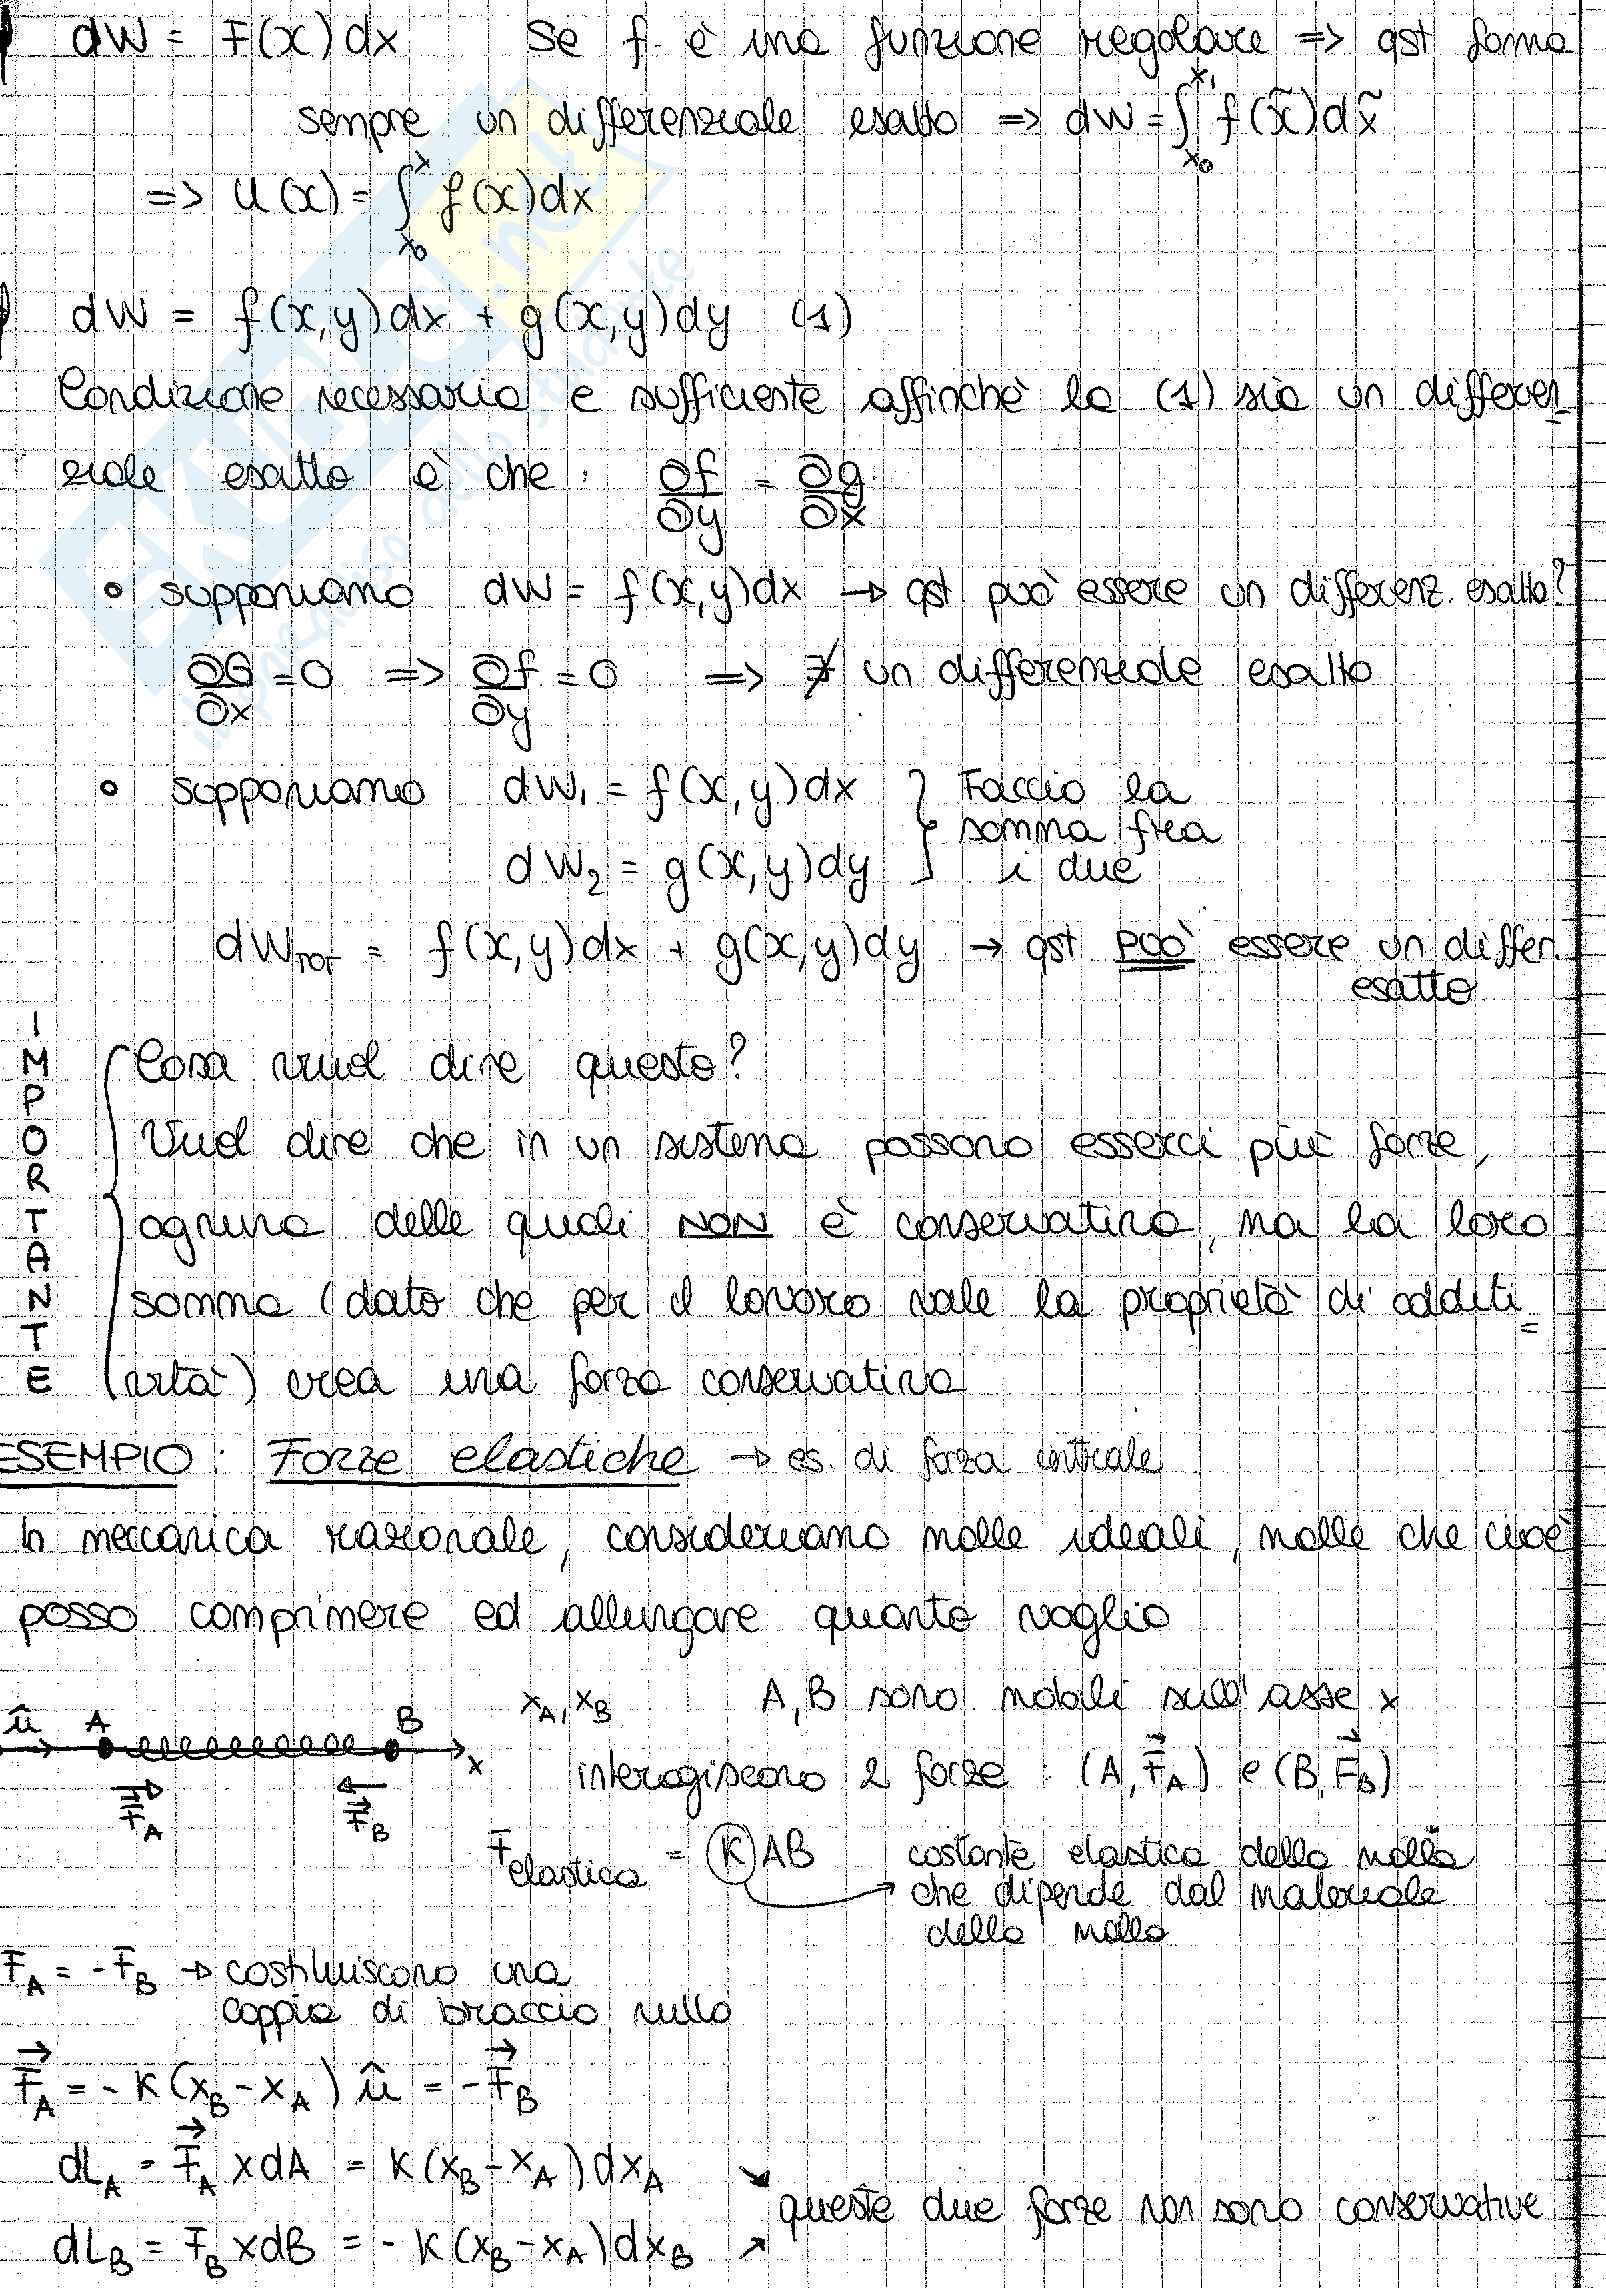 dW = F(x)dx Se f è una funzione regolare => qst forma
sempre un differenziale esatto => dW = ∫_{x₀}^{x₁} f(x̃)dx̃
=> U(x) = ∫_{x₀}^{x} f(x)dx
dW = f(x,y)dx + g(x,y)dy (1)
Condizione necessaria e sufficiente affinchè la (1) sia un differen
ziale esatto è che: ∂f/∂y = ∂g/∂x
• supponiamo dW = f(x,y)dx → qst può essere un differenz. esatto?
∂G/∂x = 0 => ∂f/∂y = 0 => ∄ un differenziale esatto
• supponiamo dW₁ = f(x,y)dx } Faccio la
somma fra
dW₂ = g(x,y)dy i due
dW_TOT = f(x,y)dx + g(x,y)dy → qst PUÒ essere un differ.
esatto
IMPORTANTE
Cosa vuol dire questo?
Vuol dire che in un sistema possono esserci più forze,
ognuna delle quali NON è conservativa, ma la loro
somma (dato che per il lavoro vale la proprietà di additi=
vità) crea una forza conservativa
ESEMPIO: Forze elastiche → es. di forza centrale
In meccanica razionale, consideriamo molle ideali, molle che cioè
posso comprimere ed allungare quanto voglio
x_A, x_B A, B sono mobili sull'asse x
û A B x
interagiscono 2 forze: (A, F⃗_A) e (B, F⃗_B)
F⃗_A F⃗_B
F̄_elastica = K AB costante elastica della molla
che dipende dal materiale
della molla
F̄_A = -F̄_B → costituiscono una
coppia di braccio nullo
F⃗_A = - K(x_B - x_A) û = -F⃗_B
dL_A = F⃗_A x dA = K(x_B - x_A)dx_A
queste due forze non sono conservative
dL_B = F_B x dB = - K(x_B - x_A)dx_B